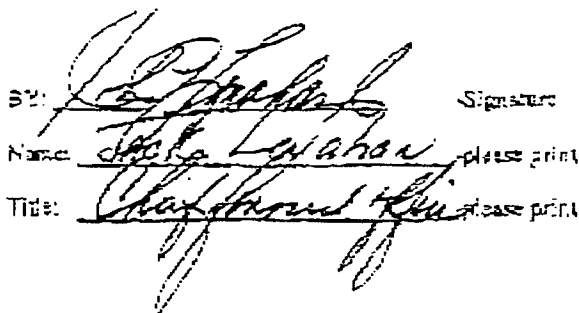 BY: Signature
Name: Jack Lenahan please print
Title: Chief Financial Officer please print